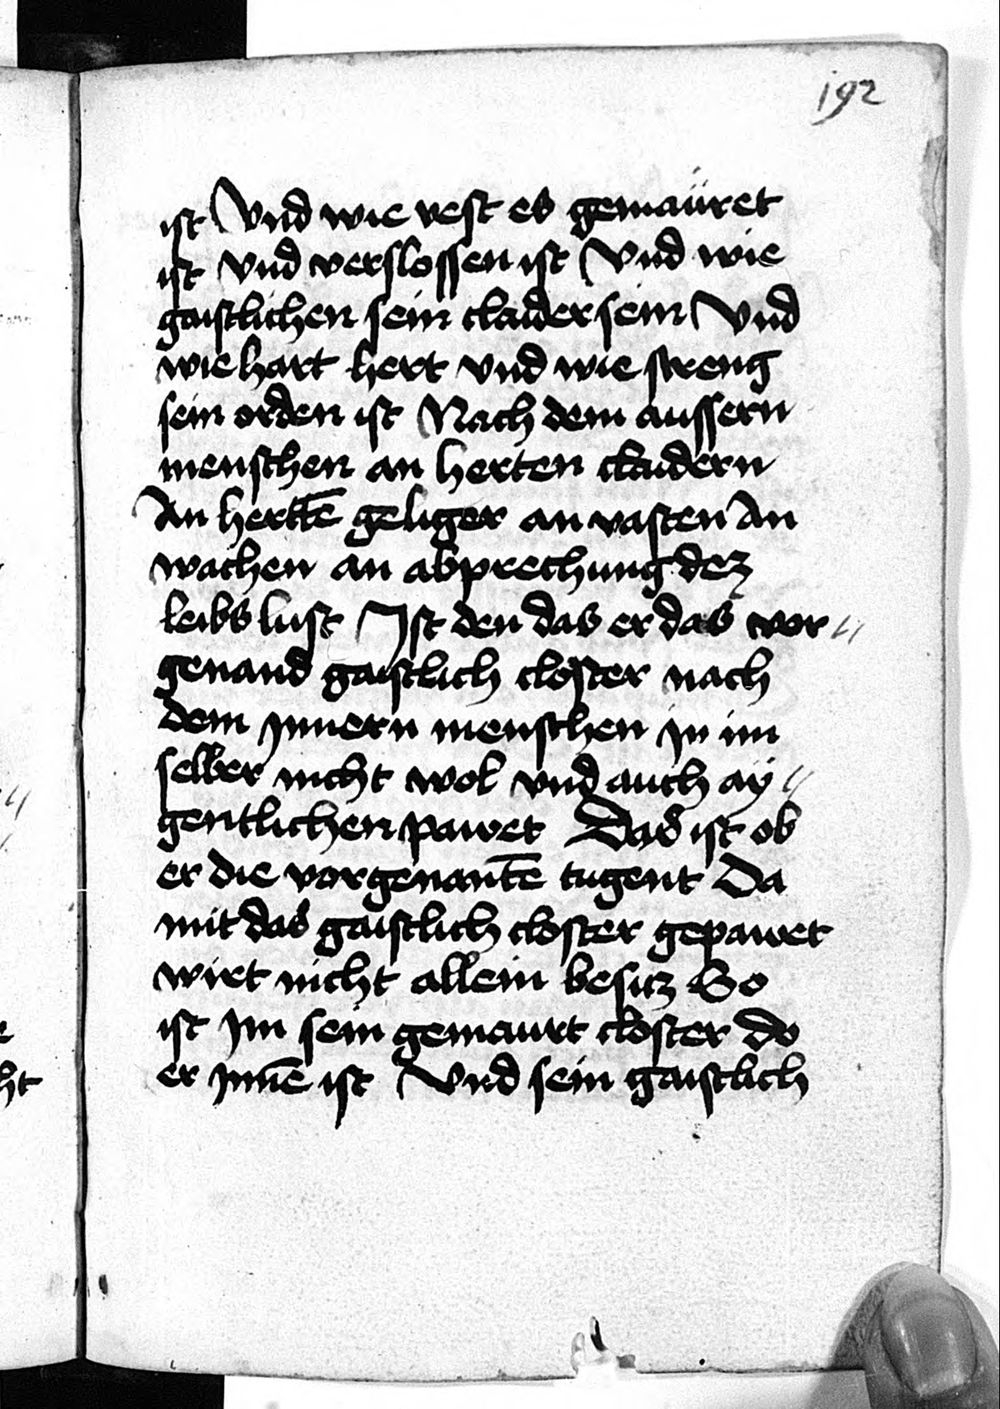 192
ist Vnd wie vest es gemaüret
ist vnd verslossen ist Vnd wie
gaistlichen sein claider sein Vnd
wie hart hert vnd wie streng
sein orden ist Nach dem aussern
menschen an herten claidern
An hertt̄e geliger an vasten An
wachen an abprechung dez
leibs lust Ist den das er das vor〃
genand gaistlich closter nach
dem Jnnern menschen jn im
selber nicht wol vnd auch aÿ〃
gentlichen pawet Das ist ob
er die vorgenant̄e tugent Da
mit das gaistlich closter gepawet
wirt nicht allein besitz So
ist Jm sein gemaurt closter do
er jnn̄e ist Vnd sein gaistlich
ht